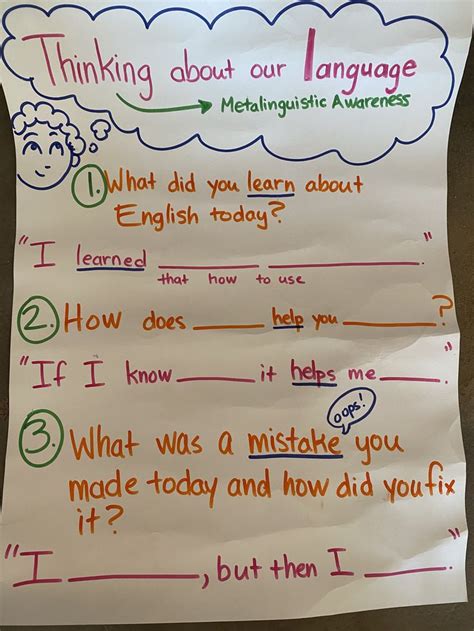 Thinking about our language
→ Metalinguistic Awareness
1. What did you learn about
English today?
"I learned ______ ______ ______."
that how to use
2. How does ______ help you ______?
"If I know ______ it helps me ______."
oops!
3. What was a mistake you
made today and how did you fix
it?
"I ______, but then I ______."